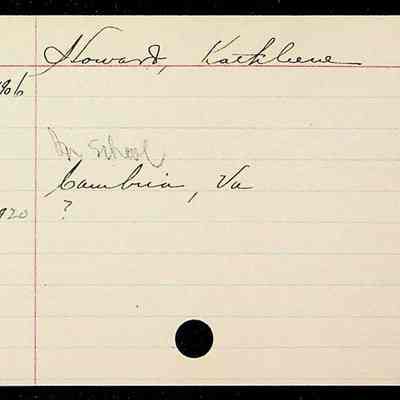 Howard, Kathleene
906
In school
Cambria, Va
920 ?